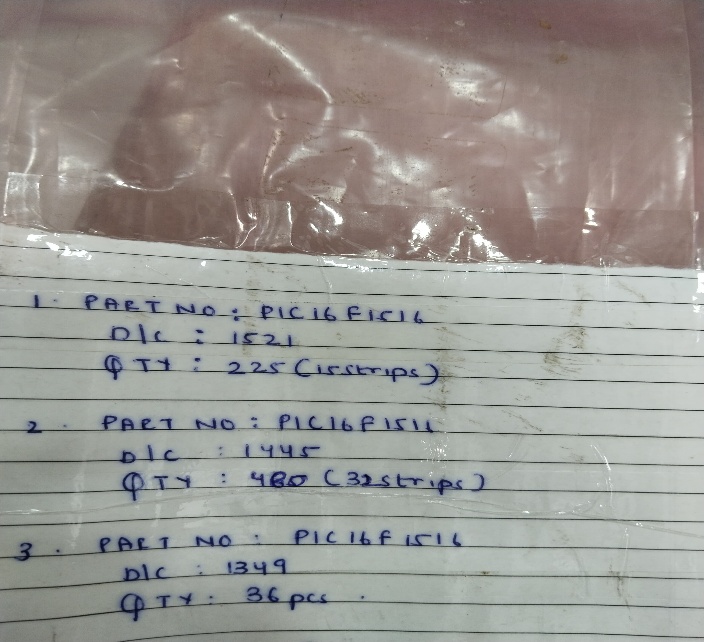 1. PART NO: PIC16F1516
D/C : 1521
QTY : 225 (15strips)
2. PART NO: PIC16F1516
D/C : 1445
QTY : 480 (32strips)
3. PART NO: PIC16F1516
D/C : 1349
QTY : 36 pcs.